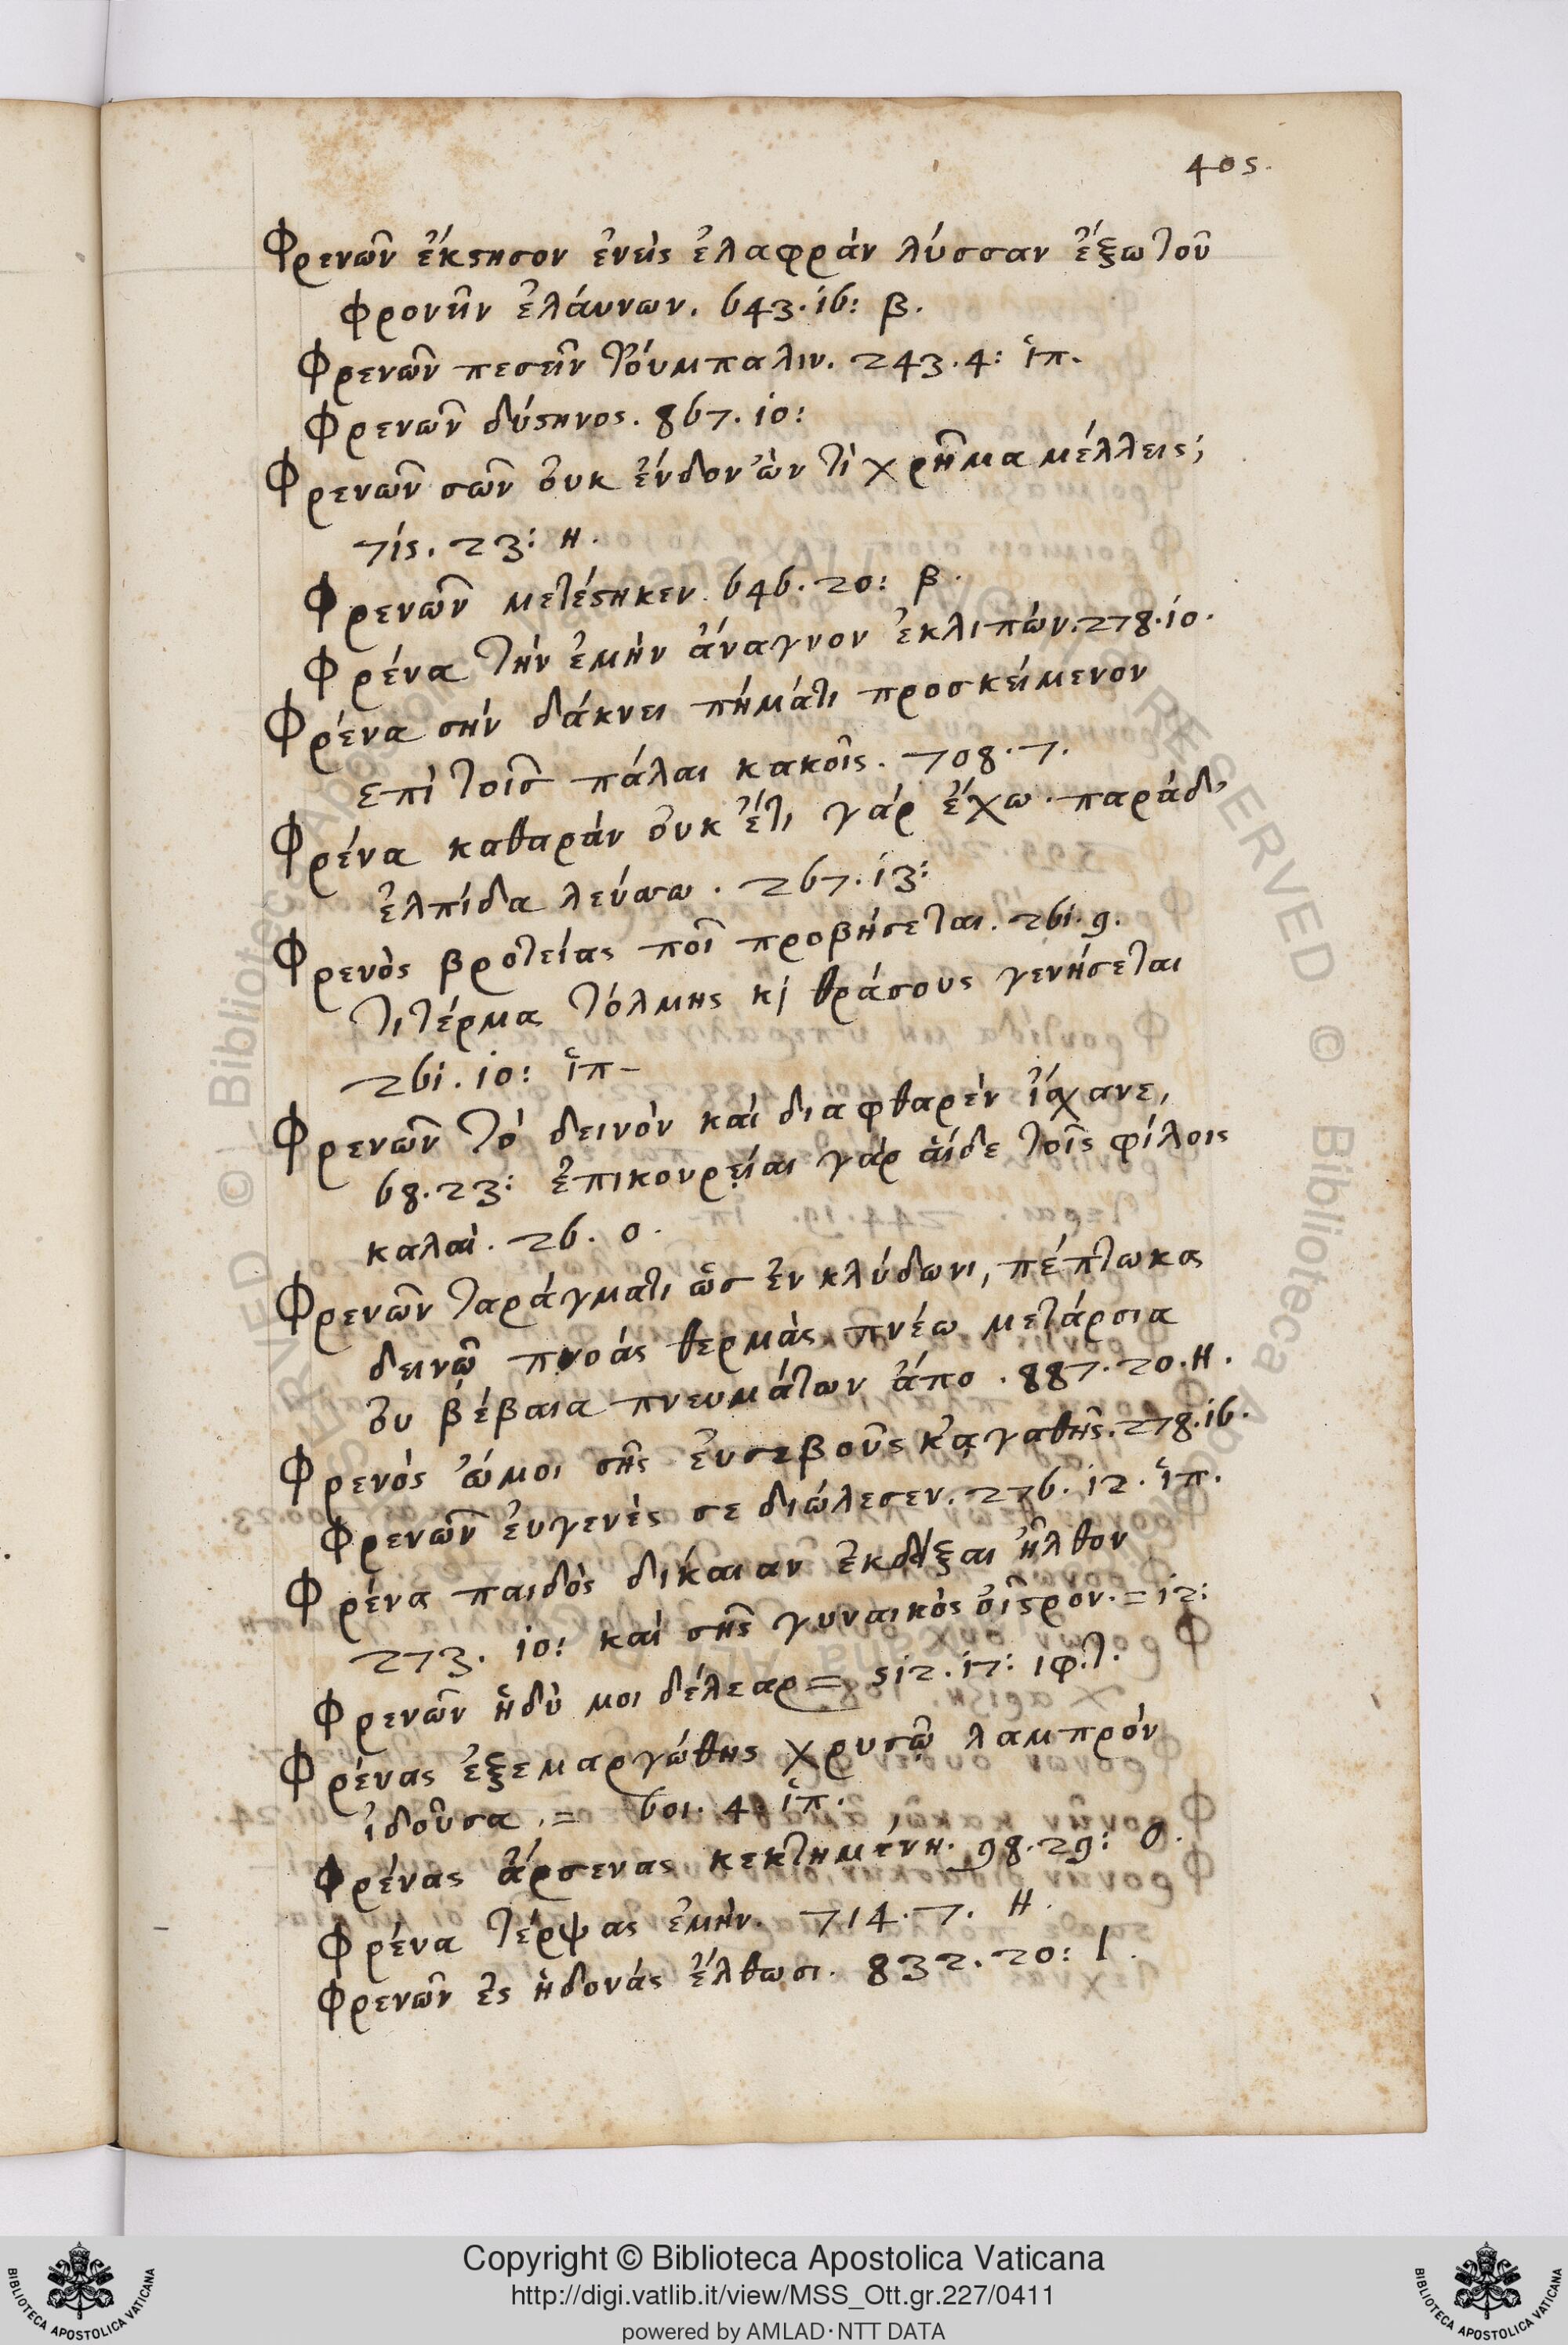 405.
Φρενῶν ἔκστησον ἐνεὶς ἐλαφρὰν λύσσαν ἔξω τοῦ
φρονεῖν ἐλάυνων. 643. 16: β.
Φρενῶν πεσεῖν τὀύμπαλιν. 243. 4: ἱπ.
Φρενῶν δύστηνος. 867. 10:
Φρενῶν σῶν ὀυκ ἔνδον ὢν τὶ χρῆμα μέλλεις;
715. 23: Η.
Φρενῶν μετέστηκεν 646. 20: β.
Φρένα τὴν ἐμὴν ἄναγνον ἐκλιπών. 278. 10.
Φρένα σὴν δάκνει πήματι προσκείμενον
επὶ τοῖσ πάλαι κακοῖς. 708. 7.
Φρένα καθαρὰν ὀυκ ἔτι γὰρ ἔχω. παρὰ δ'
ἐλπίδα λεύσσω. 267. 13:
Φρενὸς βροτείας ποῖ προβήσεται. 261. 9.
τι τέρμα τόλμης κὶ θράσους γενήσεται
261. 10: ἱπ–
Φρενῶν τὸ δεινὸν καὶ διαφθαρὲν ἴσχανε,
68. 23: ἐπικουρίαι γὰρ ἁίδε τοῖς φίλοις
καλαὶ. 26. ο.
Φρενῶν ταράγματι ὥσ ἐν κλύδωνι, πέπτωκα
δεινῷ πνοὰς θερμὰς πνέω μετάρσια
ὀυ βέβαια πνευμάτων ἄπο. 887. 20. Η.
Φρενὸς ὤμοι σῆς ἐυσεβοῦς κἀγαθῆς. 278. 16.
Φρενῶν ἐυγενὲς σε διώλεσεν. 276. 12. ἱπ.
Φρένα παιδὸς δικαιαν ἐκδεῖξαι ἦλθον
273. 10: καὶ σῆς γυναικὸς οἶστρον. = 12:
Φρενῶν ἡδὺ μοι δέλεαρ = 512. 17: ιφ.τ.
Φρένας ἐξεμαργώθης χρυσῷ λαμπρὸν
ἰδοῦσα. = 601. 4: ἱπ.
Φρένας ἄρσενας κεκτημένη. 98. 29: Ο.
Φρένα τέρψας ἐμὴν. 714. 7. Η.
Φρενῶν ἐς ἡδονὰς ἔλθωσι. 832. 20: Ι.
Copyright © Biblioteca Apostolica Vaticana
http://digi.vatlib.it/view/MSS_Ott.gr.227/0411
powered by AMLAD·NTT DATA
BIBLIOTECA APOSTOLICA VATICANA
BIBLIOTECA APOSTOLICA VATICANA